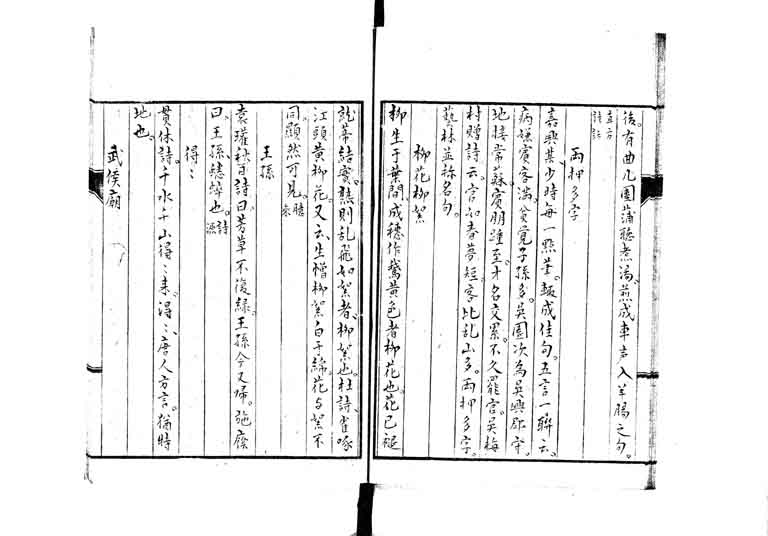 後有曲几團蒲聽煮湯煎成車声入羊腸之句。
立方
詩話
両押多字
嘉興某少時每一點筆。輙成佳句。五言一聯云、
病嫌賓客滿。貧覺子孫多。吳園次為吳興郡守。
地接常蘇。賓朋踵至。才名交累。不久罷官。吳梅
村贈詩云。官如春夢短。客比乱山多。両押多字。
藝林並称名句。
柳花柳絮
柳生于葉間。成穗作鵞黄色者柳花也。花已褪
就蒂結實。熟則乱飛如絮者、柳絮也。杜詩、雀啄
江頭黄柳花。又云、生憎柳絮白于綿。花与絮不
同、顯然可見。
王孫
袁瓘秋日詩曰、芳草不復緑。王孫今又帰。施廕
曰。王孫蟋蟀也。詩
源
得〻
貫休詩。千水千山得〻来。得〻、唐人方言。猶特
地也。
武侯廟